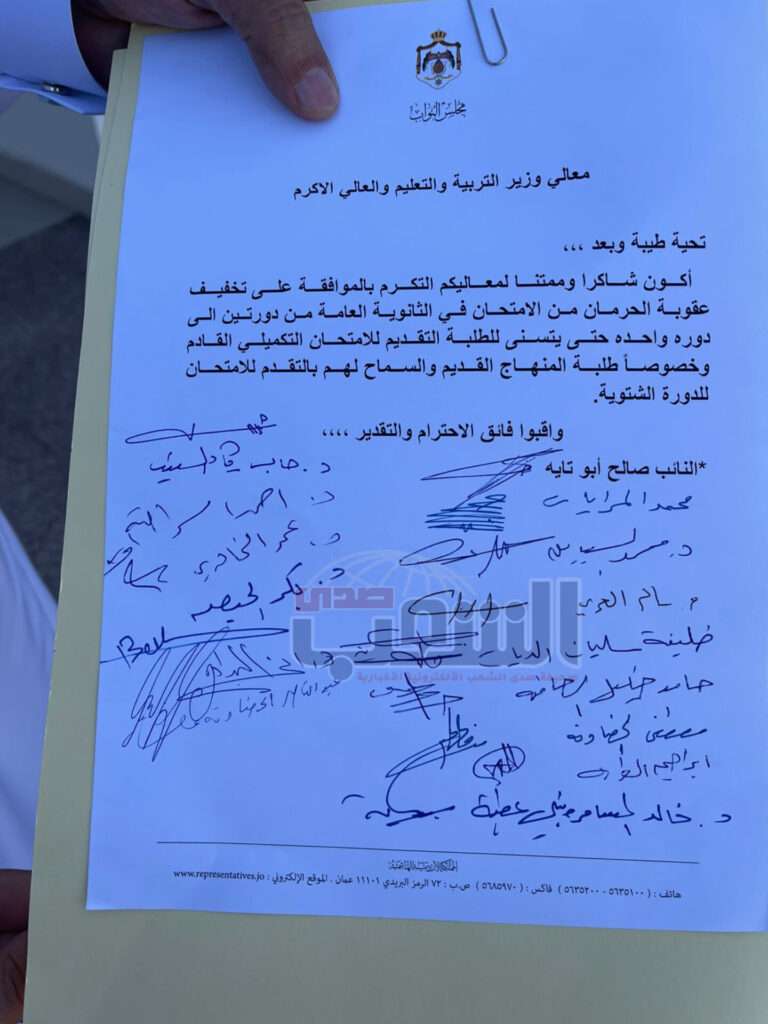 مجلس النواب
معالي وزير التربية والتعليم والعالي الاكرم
تحية طيبة وبعد ,,,
أكون شاكرا وممتنا لمعاليكم التكرم بالموافقة على تخفيف
عقوبة الحرمان من الامتحان في الثانوية العامة من دورتين الى
دوره واحده حتى يتسنى للطلبة التقديم للامتحان التكميلي القادم
وخصوصاً طلبة المنهاج القديم والسماح لهم بالتقدم للامتحان
للدورة الشتوية.
واقبوا فائق الاحترام والتقدير ,,,,
*النائب صالح أبو تايه
محمد المرايات
د.
سالم العمري
خليفة سليمان الديات
حامد
مصطفى الخصاونة
ابراهيم
د. خالد
د.
د. احمد
د. عمر
د. بكر الحيصه
عبد الناصر الخصاونة
صدى
الشعب
صحيفة صدى الشعب الالكترونية الاخبارية
المملكة الأردنية الهاشمية
هاتف : ( ٥٦٣٥١٠٠ - ٥٦٣٥٢٠٠ ) فاكس : ( ٥٦٨٥٩٧٠ ) ص.ب : ٧٢ الرمز البريدي ١١١٠١ عمان . الموقع الإلكتروني : www.representatives.jo